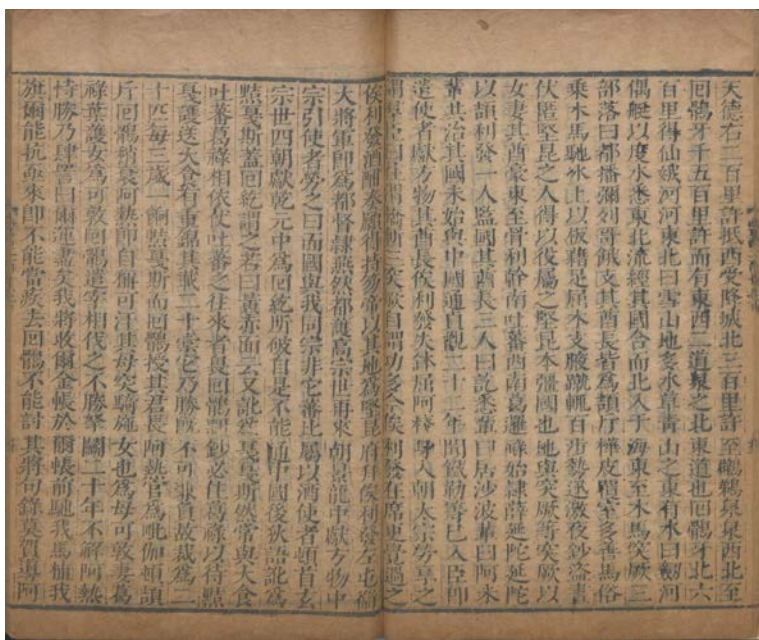 天德右二百里許抵西受降城北三百里許至鸊鵜泉泉西北至
回鶻牙千五百里許而有東西二道泉之北東道也回鶻牙北六
百里得仙娥河河東北曰雪山地多水草青山之東有水曰劒河
偶艇以度水悉東北流經其國合而北入于海東至木馬突厥三
部落曰都播彌列哥餓支其酋長皆為頡斤樺皮覆室多善馬俗
乘木馬馳冰上以板藉足屈木支腋蹴輒百步勢迅激夜鈔盜晝
伏匿堅昆之人得以役屬之堅昆本彊國也地與突厥等突厥以
女妻其酋豪東至骨利幹南吐蕃西南葛邏祿始隸薛延陀延陀
以頡利發一人監國其酋長三人曰訖悉輩曰居沙波輩曰阿米
輩共治其國未始與中國通貞觀二十二年聞鐵勒等已入臣即
遣使者獻方物其酋長俟利發失鉢屈阿棧身入朝太宗勞享之
謂羣臣曰往渭橋斬三突厥自謂功多今俟利發在席更覺過之
俟利發酒酣奏願得持笏帝以其地為堅昆府拜俟利發左屯衛
大將軍即為都督隸燕然都護高宗世再來朝景龍中獻方物中
宗引使者勞之曰而國與我同宗非它蕃比屬以酒使者頓首玄
宗世四朝獻乾元中為回紇所破自是不能通中國後狄語訛為
黠戛斯蓋回紇謂之若曰黃赤面云又訛為戛戛斯然常與大食
吐蕃葛祿相依仗吐蕃之往來者畏回鶻剽鈔必住葛祿以待黠
戛斯護送大食有重錦其載二十橐它乃勝既不可兼負故裁為二
十匹每三歲一餉黠戛斯而回鶻授其君長阿熱官為毗伽頓頡
斤回鶻稍衰阿熱即自稱可汗其母突騎施女也為母可敦妻葛
祿葉護女為可敦回鶻遣宰相伐之不勝拏鬭二十年不解阿熱
恃勝乃肆詈曰爾運盡矣我將收爾金帳於爾帳前馳我馬植我
旗爾能抗亟來即不能當疾去回鶻不能討其將句錄莫賀導阿